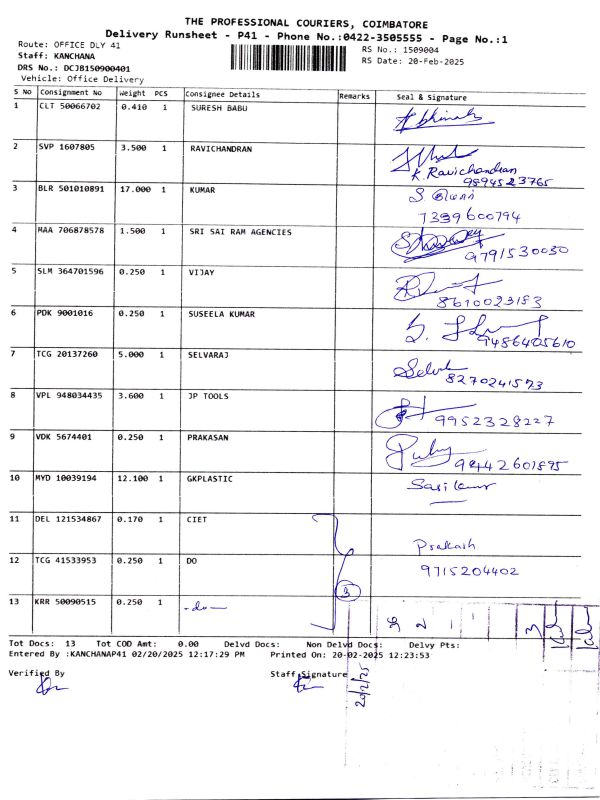 THE PROFESSIONAL COURIERS, COIMBATORE
Delivery Runsheet - P41 - Phone No.:0422-3505555 - Page No.:1
Route: OFFICE DLY 41
RS No.: 1509004
Staff: KANCHANA
RS Date: 20-Feb-2025
DRS No.: DCJB150900401
Vehicle: Office Delivery
S No Consignment No Weight PCS Consignee Details Remarks Seal & Signature
1 CLT 50066702 0.410 1 SURESH BABU
2 SVP 1607805 3.500 1 RAVICHANDRAN
K. Ravichandran
9894523765
3 BLR 501010891 17.000 1 KUMAR
7339600794
4 MAA 706878578 1.500 1 SRI SAI RAM AGENCIES
9791530030
5 SLM 364701596 0.250 1 VIJAY
8610023183
6 PDK 9001016 0.250 1 SUSEELA KUMAR
9486405610
7 TCG 20137260 5.000 1 SELVARAJ
8270241573
8 VPL 948034435 3.600 1 JP TOOLS
9952328227
9 VDK 5674401 0.250 1 PRAKASAN
9442601895
10 MYD 10039194 12.100 1 GKPLASTIC
Sasikumar
11 DEL 121534867 0.170 1 CIET
Prakash
12 TCG 41533953 0.250 1 DO
9715204402
3
13 KRR 50090515 0.250 1 -do-
36 2 1 3
Tot Docs: 13 Tot COD Amt: 0.00 Delvd Docs: Non Delvd Docs: Delvy Pts:
Entered By :KANCHANAP41 02/20/2025 12:17:29 PM Printed On: 20-02-2025 12:23:53
Verified By Staff Signature
20/2/25